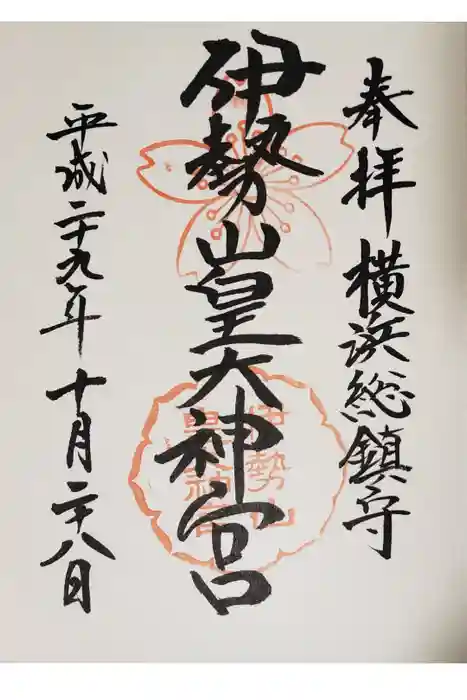 奉拝 横浜総鎮守
伊勢山皇大神宮
伊勢山
皇大神宮
平成二十九年十月二十八日